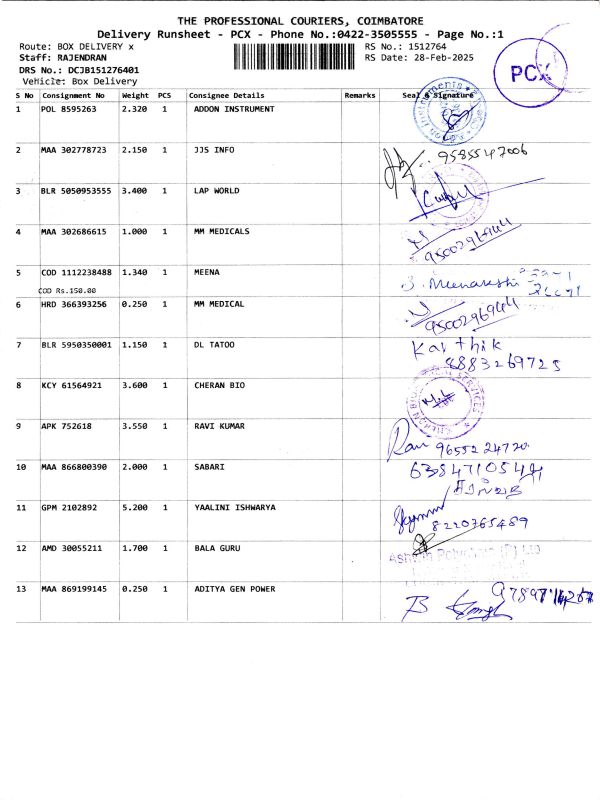 THE PROFESSIONAL COURIERS, COIMBATORE
Delivery Runsheet - PCX - Phone No.:0422-3505555 - Page No.:1
Route: BOX DELIVERY x RS No.: 1512764
Staff: RAJENDRAN RS Date: 28-Feb-2025
DRS No.: DCJB151276401
Vehicle: Box Delivery
PCX
S No Consignment No Weight PCS Consignee Details Remarks Seal & Signature
1 POL 8595263 2.320 1 ADDON INSTRUMENT
2 MAA 302778723 2.150 1 JJS INFO 9585547006
3 BLR 5050953555 3.400 1 LAP WORLD
4 MAA 302686615 1.000 1 MM MEDICALS 9500296944
5 COD 1112238488 1.340 1 MEENA Meenakshi
COD Rs.150.00
6 HRD 366393256 0.250 1 MM MEDICAL 9500296944
7 BLR 5950350001 1.150 1 DL TATOO Karthik
8883269725
8 KCY 61564921 3.600 1 CHERAN BIO
9 APK 752618 3.550 1 RAVI KUMAR Ravi 9655224720
10 MAA 866800390 2.000 1 SABARI
11 GPM 2102892 5.200 1 YAALINI ISHWARYA 8220765489
12 AMD 30055211 1.700 1 BALA GURU
13 MAA 869199145 0.250 1 ADITYA GEN POWER